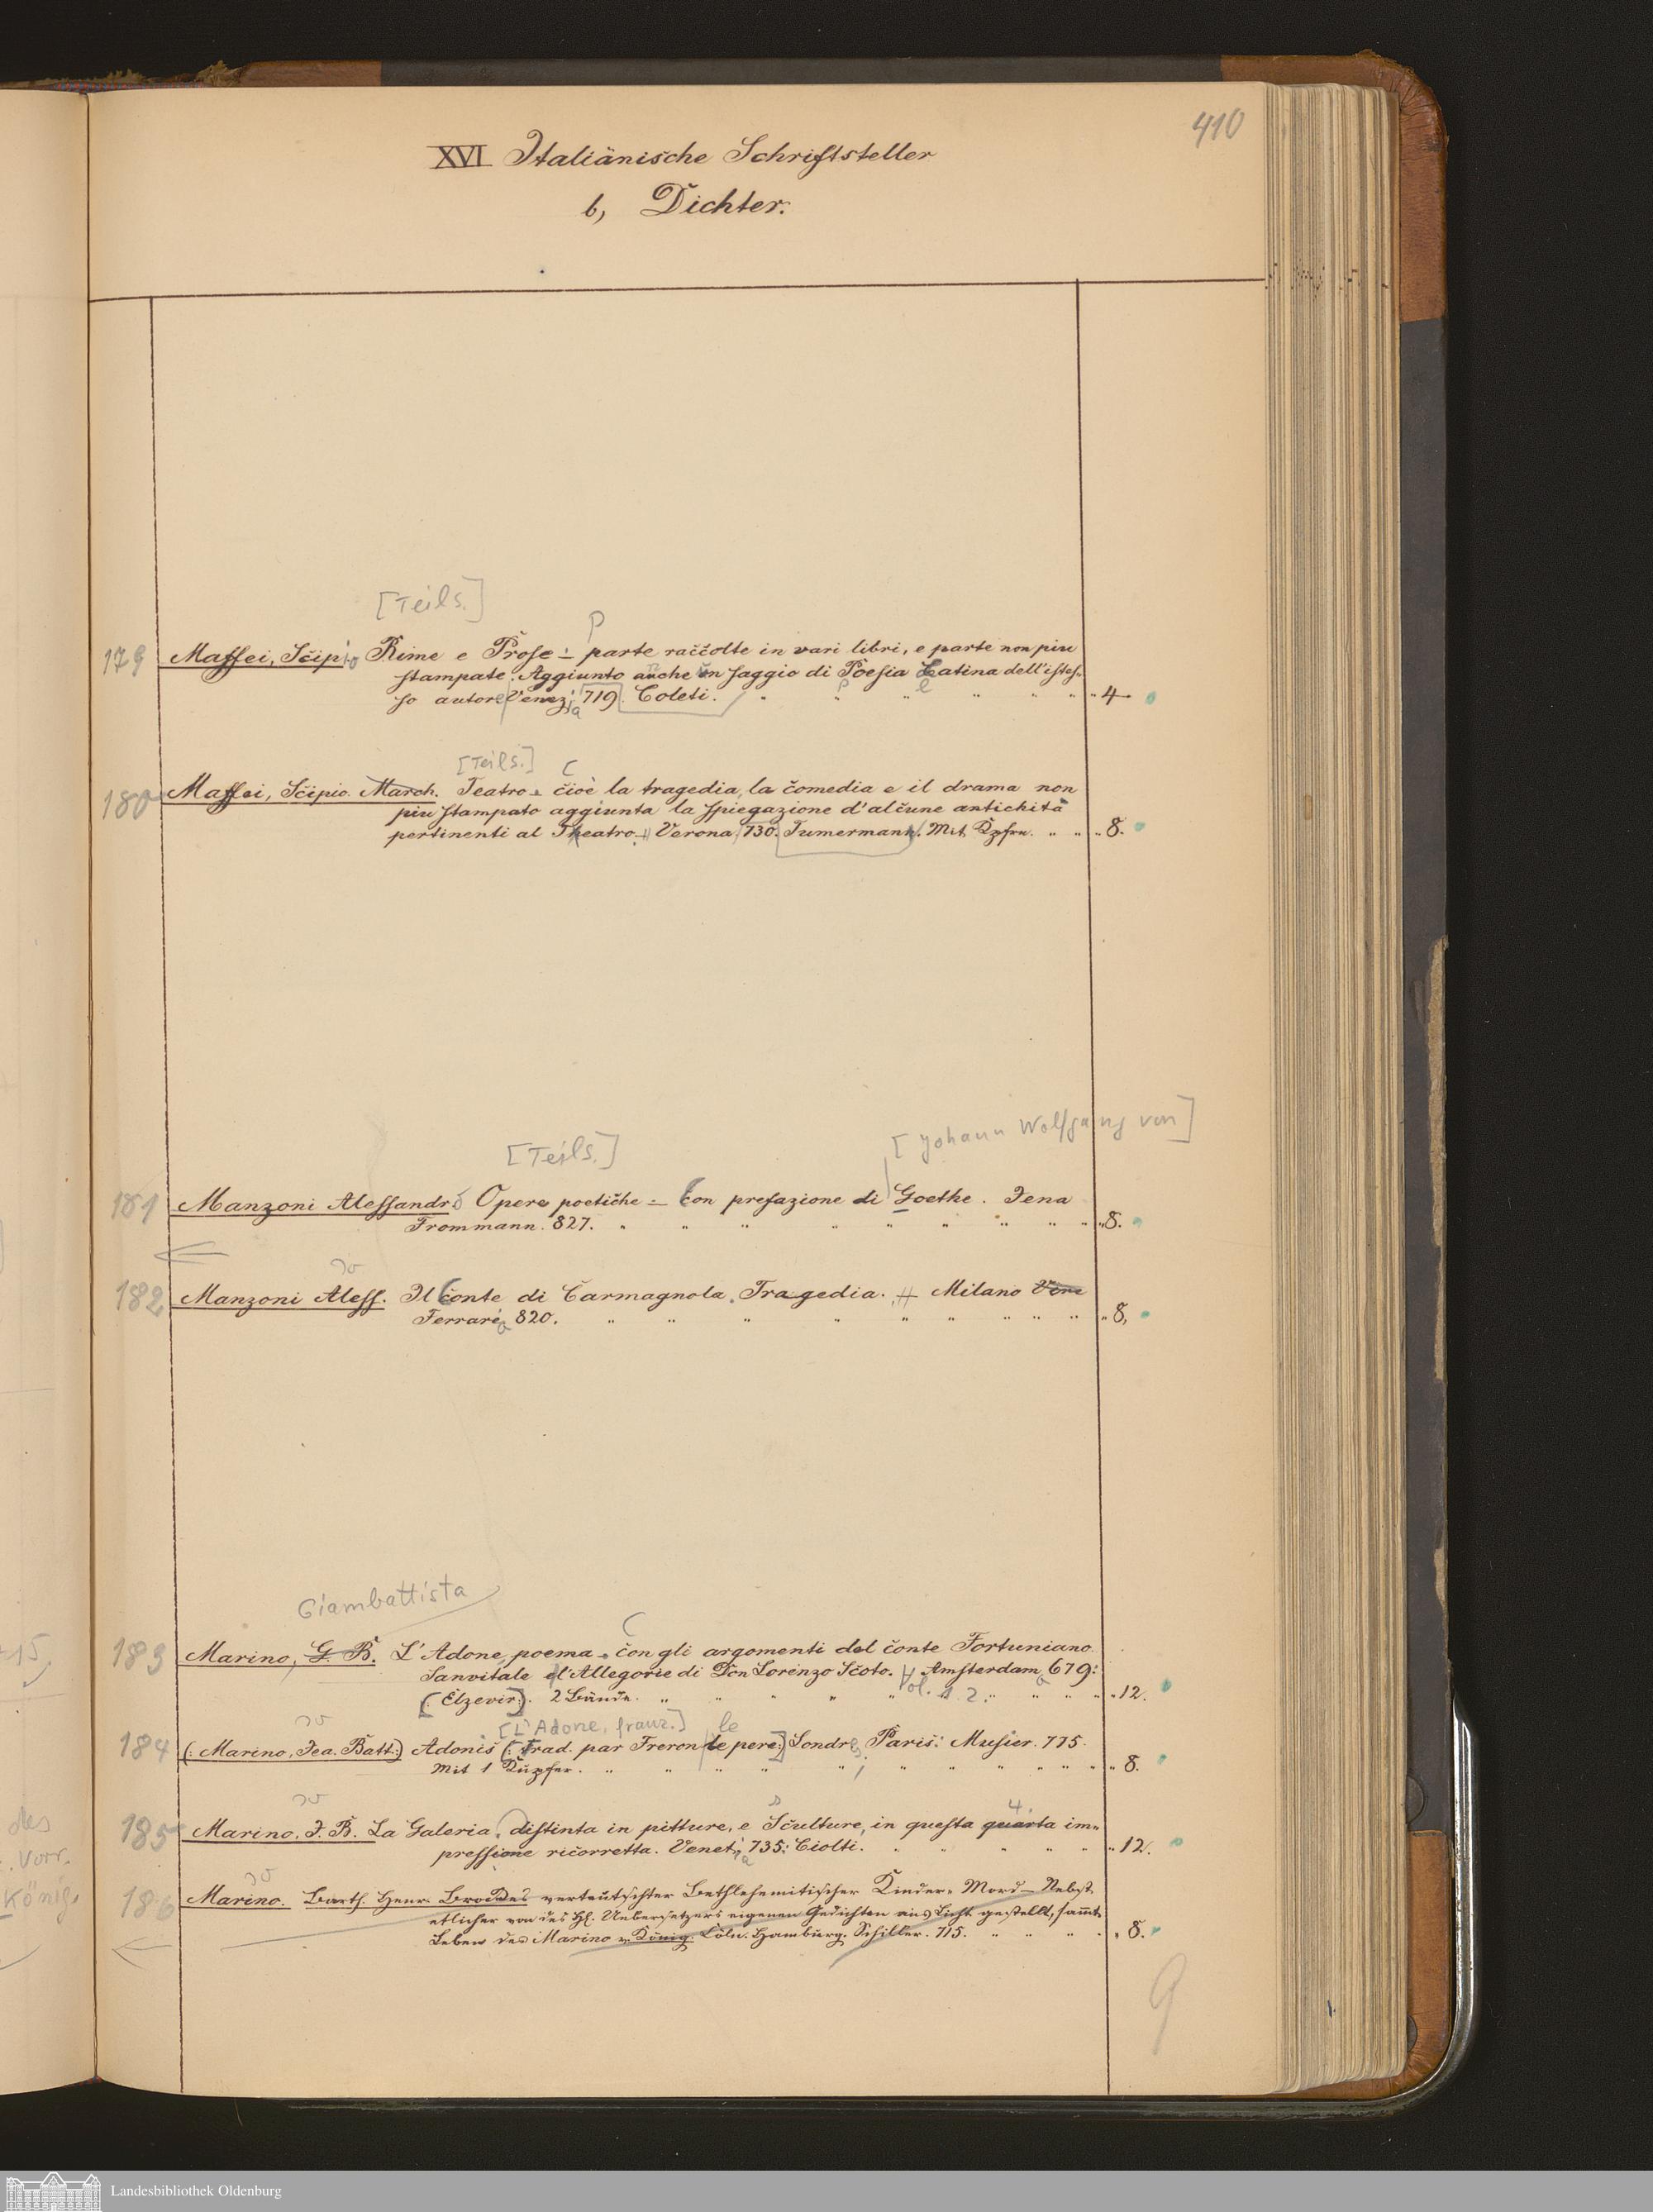 410
XVI Italiänische Schriftsteller
b, Dichter.
[Teils.]
P
179 Maffei, Scipio Rime e Prose = parte raccolte in vari libri, e parte non piu
stampate. Aggiunto anche un saggio di Poesia Latina dell'istes-
so autore Venezia 719. Coleti. " " " " " " " 4
[Teils.] C
180 Maffei, Scipio March. Teatro = cioè la tragedia, la comedia e il drama non
piu stampato aggiunta la spiegazione d'alcune antichità
pertinenti al Theatro. Verona 730. Tumermann. Mit Kpfrn. " " " 8.
[Teils.] [Johann Wolfgang von]
181 Manzoni Alessandro Opere poetiche = Con prefazione di Goethe. Jena
Frommann. 827. " " " " " " " " " " 8.
182 Manzoni Aless. Il Conte di Carmagnola. Tragedia. Milano
Ferrario 820. " " " " " " " " " " 8,
Giambattista
C
183 Marino, G. B. L'Adone, poema = con gli argomenti del conte Fortuniano
Sanvitale e l'Allegorie di Don Lorenzo Scoto. Amsterdam 679:
[Elzevir.]. 2 Bände. " " " " " Vol. 1. 2. " " " " " 12.
[L'Adone, franz.] le
184 (: Marino, Jea. Batt:) Adonis (: Trad. par Freron le pere:) Londres, Paris: Musier. 775.
Mit 1 Kupfer. " " " " " " " " " " " 8.
s 4.
185 Marino, J. B. La Galeria, distinta in pitture, e Sculture, in questa quarta im-
pressione ricorretta. Venetia 735: Ciolti. " " " " " " 12.
186 Marino. Barth. Henr. Brockes verteutschter Bethlehemitischer Kinder-Mord – Nebst
etlicher von des H. Uebersetzers eigenen Gedichten ans Licht gestellt, sammt
Leben des Marino v. König. Cöln. Hamburg. Schiller. 715. " " " " " 8.
9
15,
des
Vorr.
König,
Landesbibliothek Oldenburg